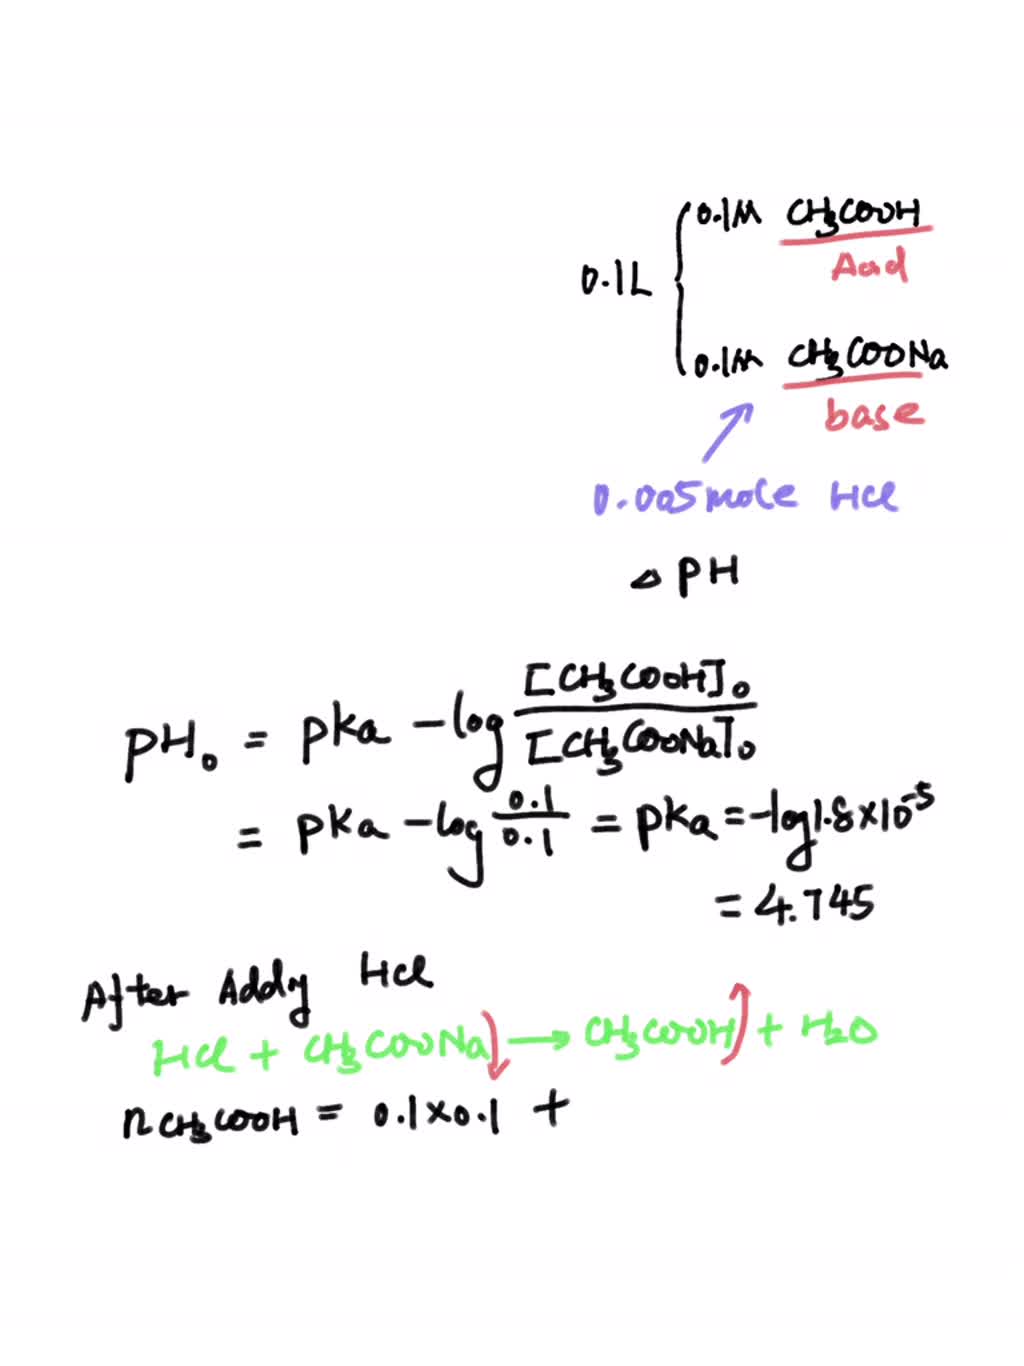 0.1M CH3COOH
Acid
0.1L
0.1M CH3COONa
base
0.005mole HCl
△ PH
PH₀ = pKa - log [CH3COOH]₀ / [CH3COONa]₀
= pKa - log 0.1/0.1 = pKa = -log1.8×10⁻⁵
= 4.745
After Addy HCl
HCl + CH3COONa → CH3COOH + H2O
nCH3COOH = 0.1×0.1 +